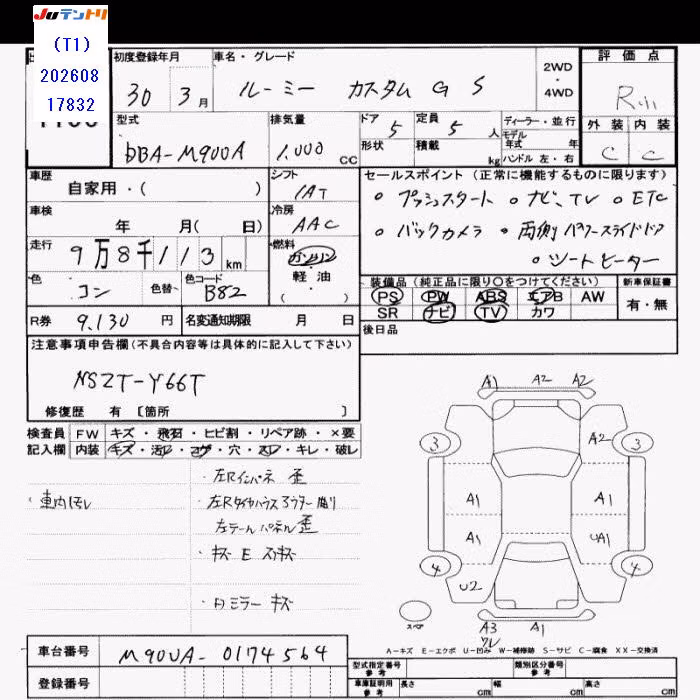 Juテントリ
(T1)
202608
17832
初度登録年月
30 3月
車名・グレード
ルーミー カスタム G S
2WD
・
4WD
評価点
R
外装 内装
C C
型式
DBA-M900A
排気量
1.000 CC
ドア 5
定員 5 人
形状
積載 kg
ディーラー・並行
モデル
年式 年
ハンドル 左・右
車歴
自家用・( )
シフト
IAT
車検
年 月( 日)
冷房
AAC
走行
9万8千113 km
燃料
ガソリン
・
軽油
( )
色
コン
色替
色コード
B82
R券 9.130 円
名変通知期限 月 日
セールスポイント(正常に機能するものに限ります)
○ プッシュスタート ○ ナビ、TV ○ ETC
○ バックカメラ ○ 両側パワースライドドア
○ シートヒーター
装備品(純正品に限り○をつけてください)
PS PW ABS エアB AW
SR ナビ TV カワ
新車保証書
有・無
後日品
注意事項申告欄(不具合内容等は具体的に記入して下さい)
NSZT-Y66T
修復歴 有 [箇所 ]
検査員
記入欄
FW キズ・飛石・ヒビ割・リペア跡・×要
内装 キズ・汚レ・コゲ・穴・スレ・キレ・破レ
・車内汚レ
・左Rインパネ 歪
左Rタイヤハウス アウター 曲り
左テールパネル 歪
・キズ E スリキズ
・内ミラー キズ
A1 A2 A2
3 A2 3
A1 A1
A1 UA1
4 4
U2
スペア
A3
ワレ
A1
A-キズ E-エクボ U-凹み W-補修跡 S-サビ C-腐食 XX-交換済
車台番号 M900A-0174564
登録番号
型式指定番号
参考
類別区分番号
参考
車庫証明用
参考
長さ cm 幅 cm 高さ cm